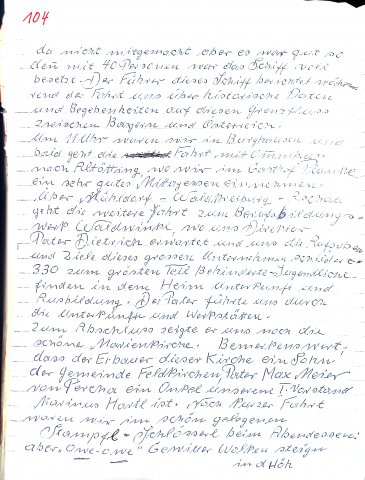 104
da nicht mitgemacht aber es war gut so
den mit 40 Personen war das Schiff voll
besetzt. Der Führer dieses Schiff berichtet wäh
rend der Fahrt uns über historische Daten
und Begebenheiten auf diesen Grenzfluss
zwischen Bayern und Österreich.
Um 11 Uhr waren wir in Burghausen und
bald geht die Fahrt mit Omnibus
nach Altötting, wo wir im Gasthof
ein sehr gutes Mittagessen einnehmen.
Über Mühldorf - Waldkreiburg - Aschau
geht die weitere Fahrt zum Berufsbildungs
werk Waldwinkl, wo uns Direktor
Pater Dietrich erwartet und uns die Aufgaben
und Ziele dieses grossen Unternehmen schilder
330 zum grösten Teil Behinderte-Jugendliche
finden in dem Heim Unterkunft und
Ausbildung. Der Pater führte uns durch
die Unterkünfte und Werkstätten.
Zum Abschluss zeigte er uns noch die
schöne Marienkirche. Bemerkenswert,
dass der Erbauer dieser Kirche ein Sohn
der gemeinde Feldkirchen, Pater Max Meier
von Percha ein Onkel unserem I. Vorstand
Marinus Hartl ist. Nach kurzer Fahrt
waren wir im schön gelegenen
Stampfl-Schlösserl beim Abendessen:
aber "owe-owe" Gewitter Wolken steigen
in d Höh